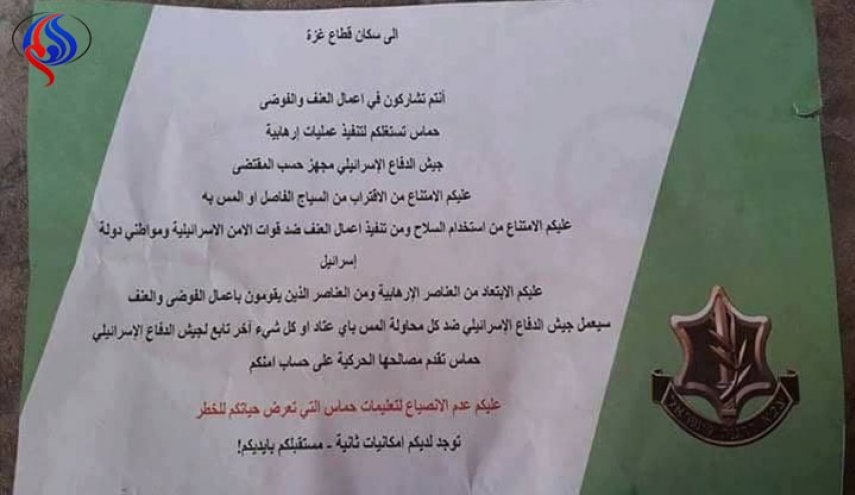 الى سكان قطاع غزة
أنتم تشاركون في اعمال العنف والفوضى
حماس تستغلكم لتنفيذ عمليات إرهابية
جيش الدفاع الإسرائيلي مجهز حسب المقتضى
عليكم الامتناع من الاقتراب من السياج الفاصل او المس به
عليكم الامتناع من استخدام السلاح ومن تنفيذ اعمال العنف ضد قوات الامن الاسرائيلية ومواطني دولة
إسرائيل
عليكم الابتعاد من العناصر الإرهابية ومن العناصر الذين يقومون باعمال الفوضى والعنف
سيعمل جيش الدفاع الإسرائيلي ضد كل محاولة المس باي عتاد او كل شيء آخر تابع لجيش الدفاع الإسرائيلي
حماس تقدم مصالحها الحركية على حساب امنكم
عليكم عدم الانصياع لتعليمات حماس التي تعرض حياتكم للخطر
توجد لديكم امكانيات ثانية - مستقبلكم بايديكم!